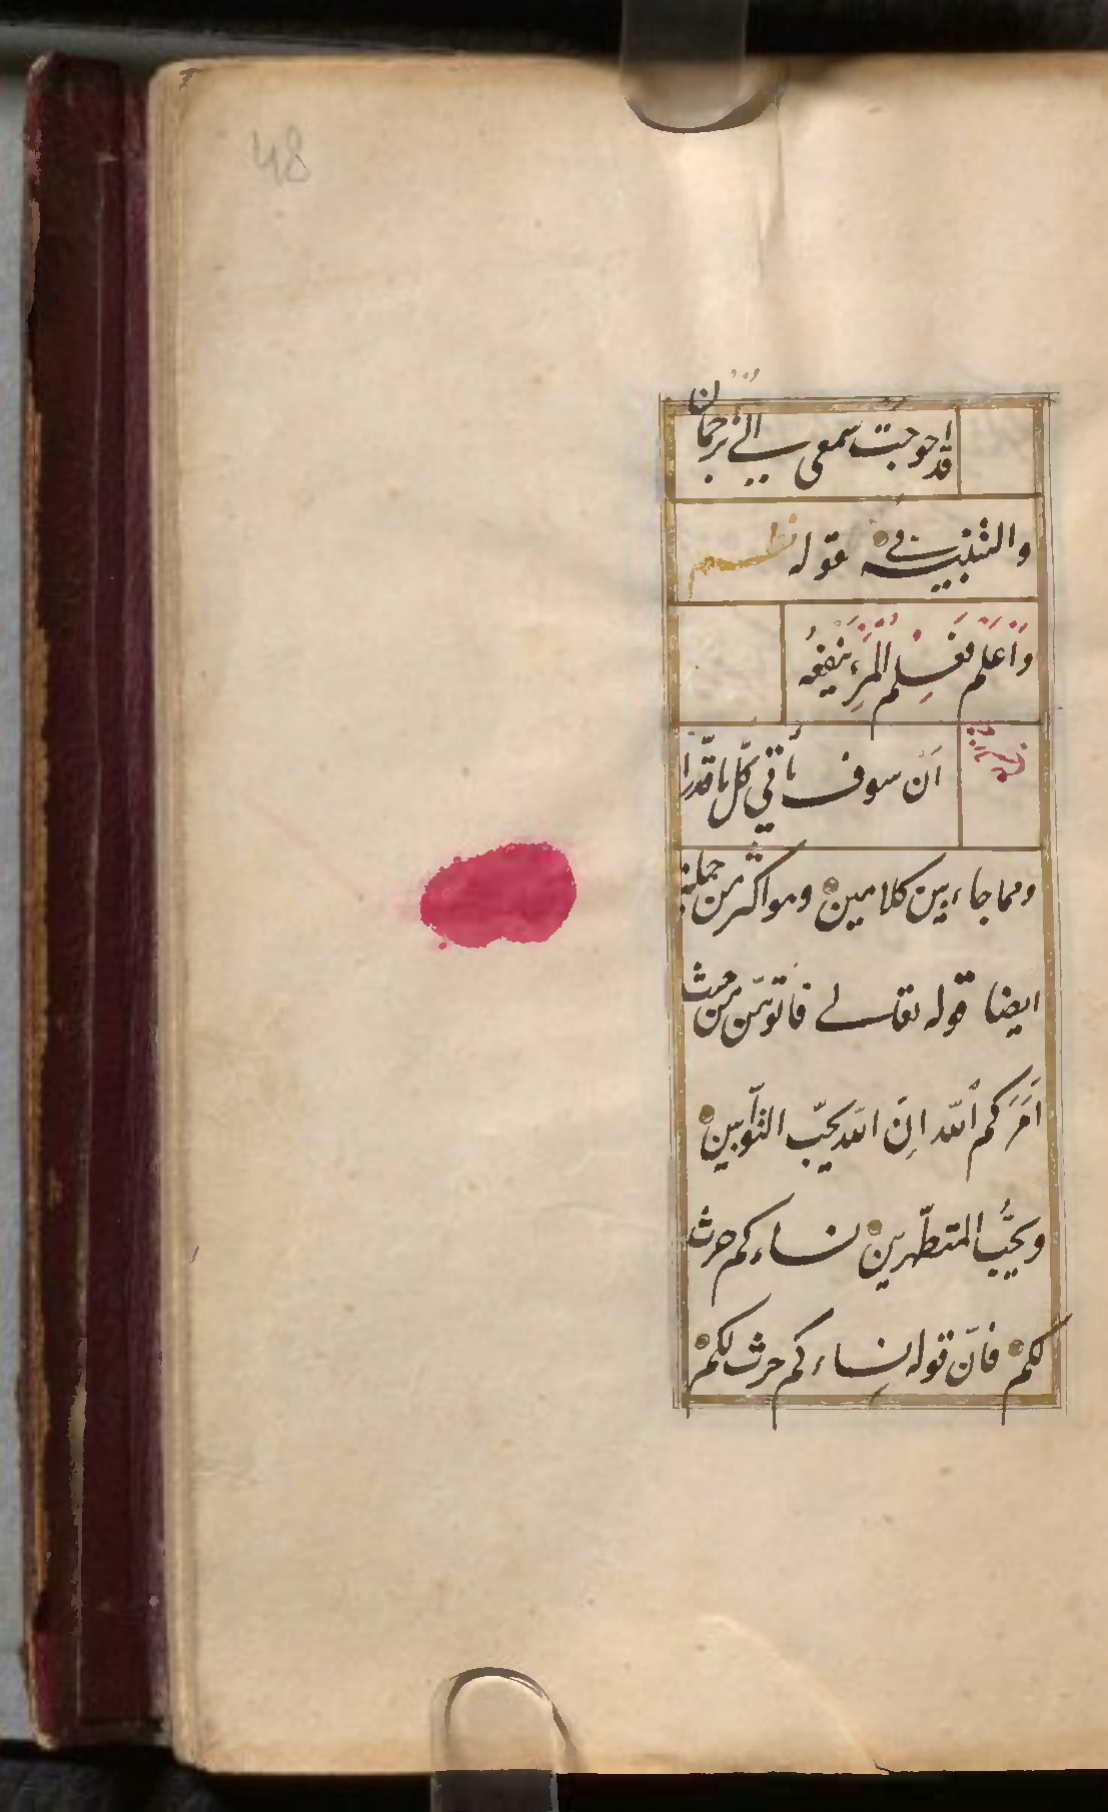 48
قد احوجت سمعى الى ترجمان
والتنبيه فى قوله نظم
وَاَعْلَم فَعِلْمُ المَرْءِ يَنْفَعُهُ
اَنْ سوف يأتي كلّ ما قُدّرا
ومما جاء بين كلامين وهو اكثر من جملة
ايضا قوله تعالى فاتوهنّ من حيث
اَمَرَكم اللّه اِنّ اللّه يحبّ التوّابين
ويحبُّ المتطهّرين نساءكم حرث
لكم فانّ قوله نِساءكم حرث لكم